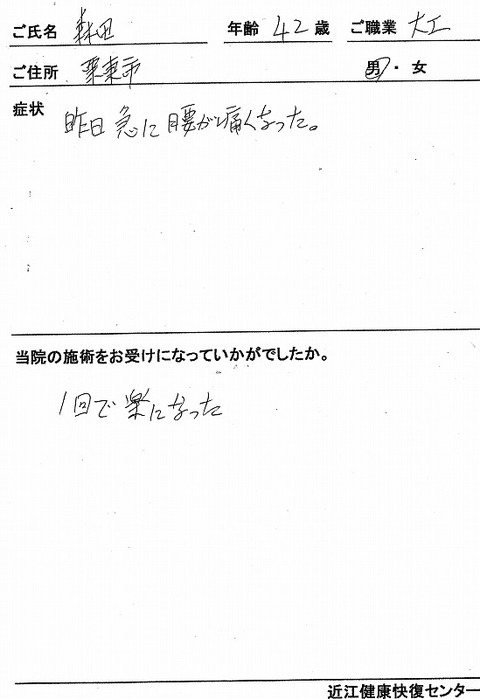 ご氏名 森田 年齢 42 歳 ご職業 大工
ご住所 栗東市 男・女
症状
昨日急に腰が痛くなった。
当院の施術をお受けになっていかがでしたか。
1回で楽になった
近江健康快復センター